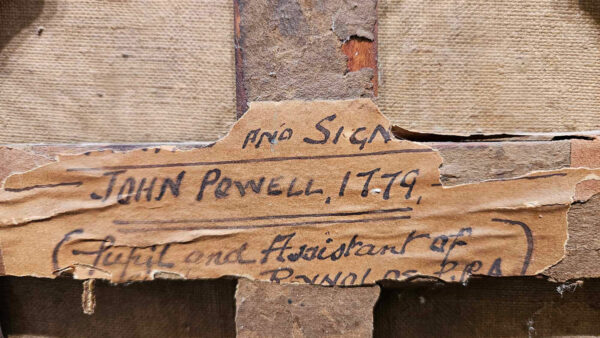 AND SIGN
JOHN POWELL, 1779,
(Pupil and Assistant of )
REYNOLDS, P.R.A